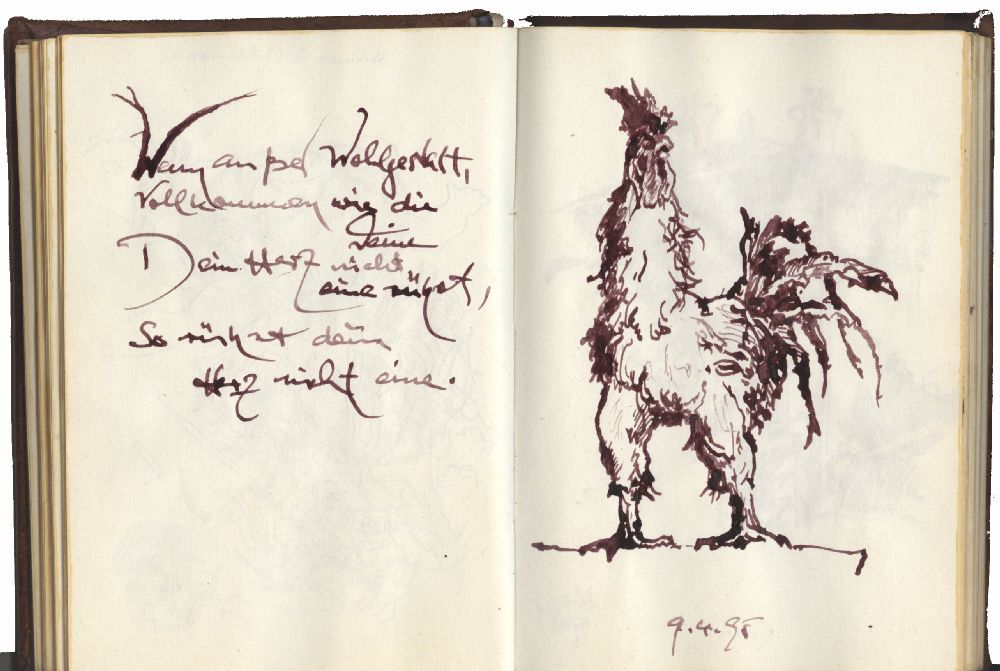 Wenn außer Wohlgestalt,
Vollkommen wie die
Deine
Dein Herz nicht
eine rührt,
So rührt dein
Herz nicht eine.